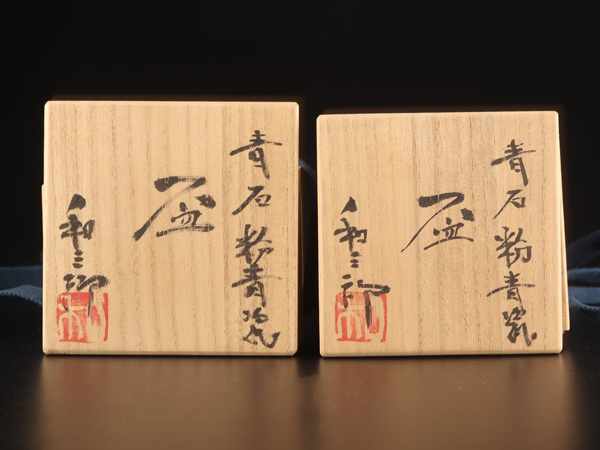 青石粉青瓷
盃
和三郎
青石粉青瓷
盃
和三郎